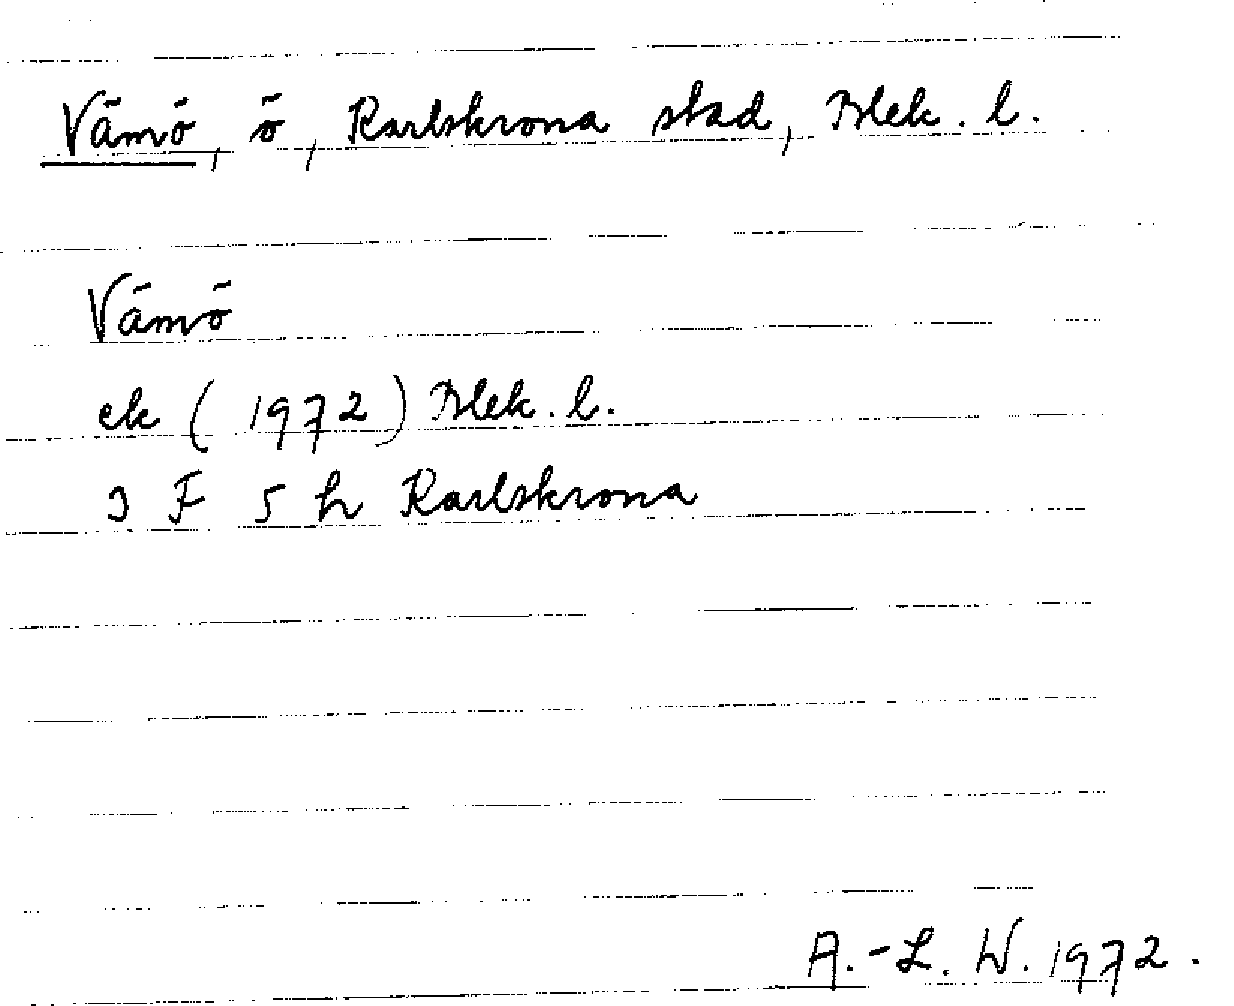 Vämö, ö, Karlskrona stad, Blek. l.
Vämö
ek (1972) Blek. l.
3 F 5 h Karlskrona
A.-L. W. 1972.